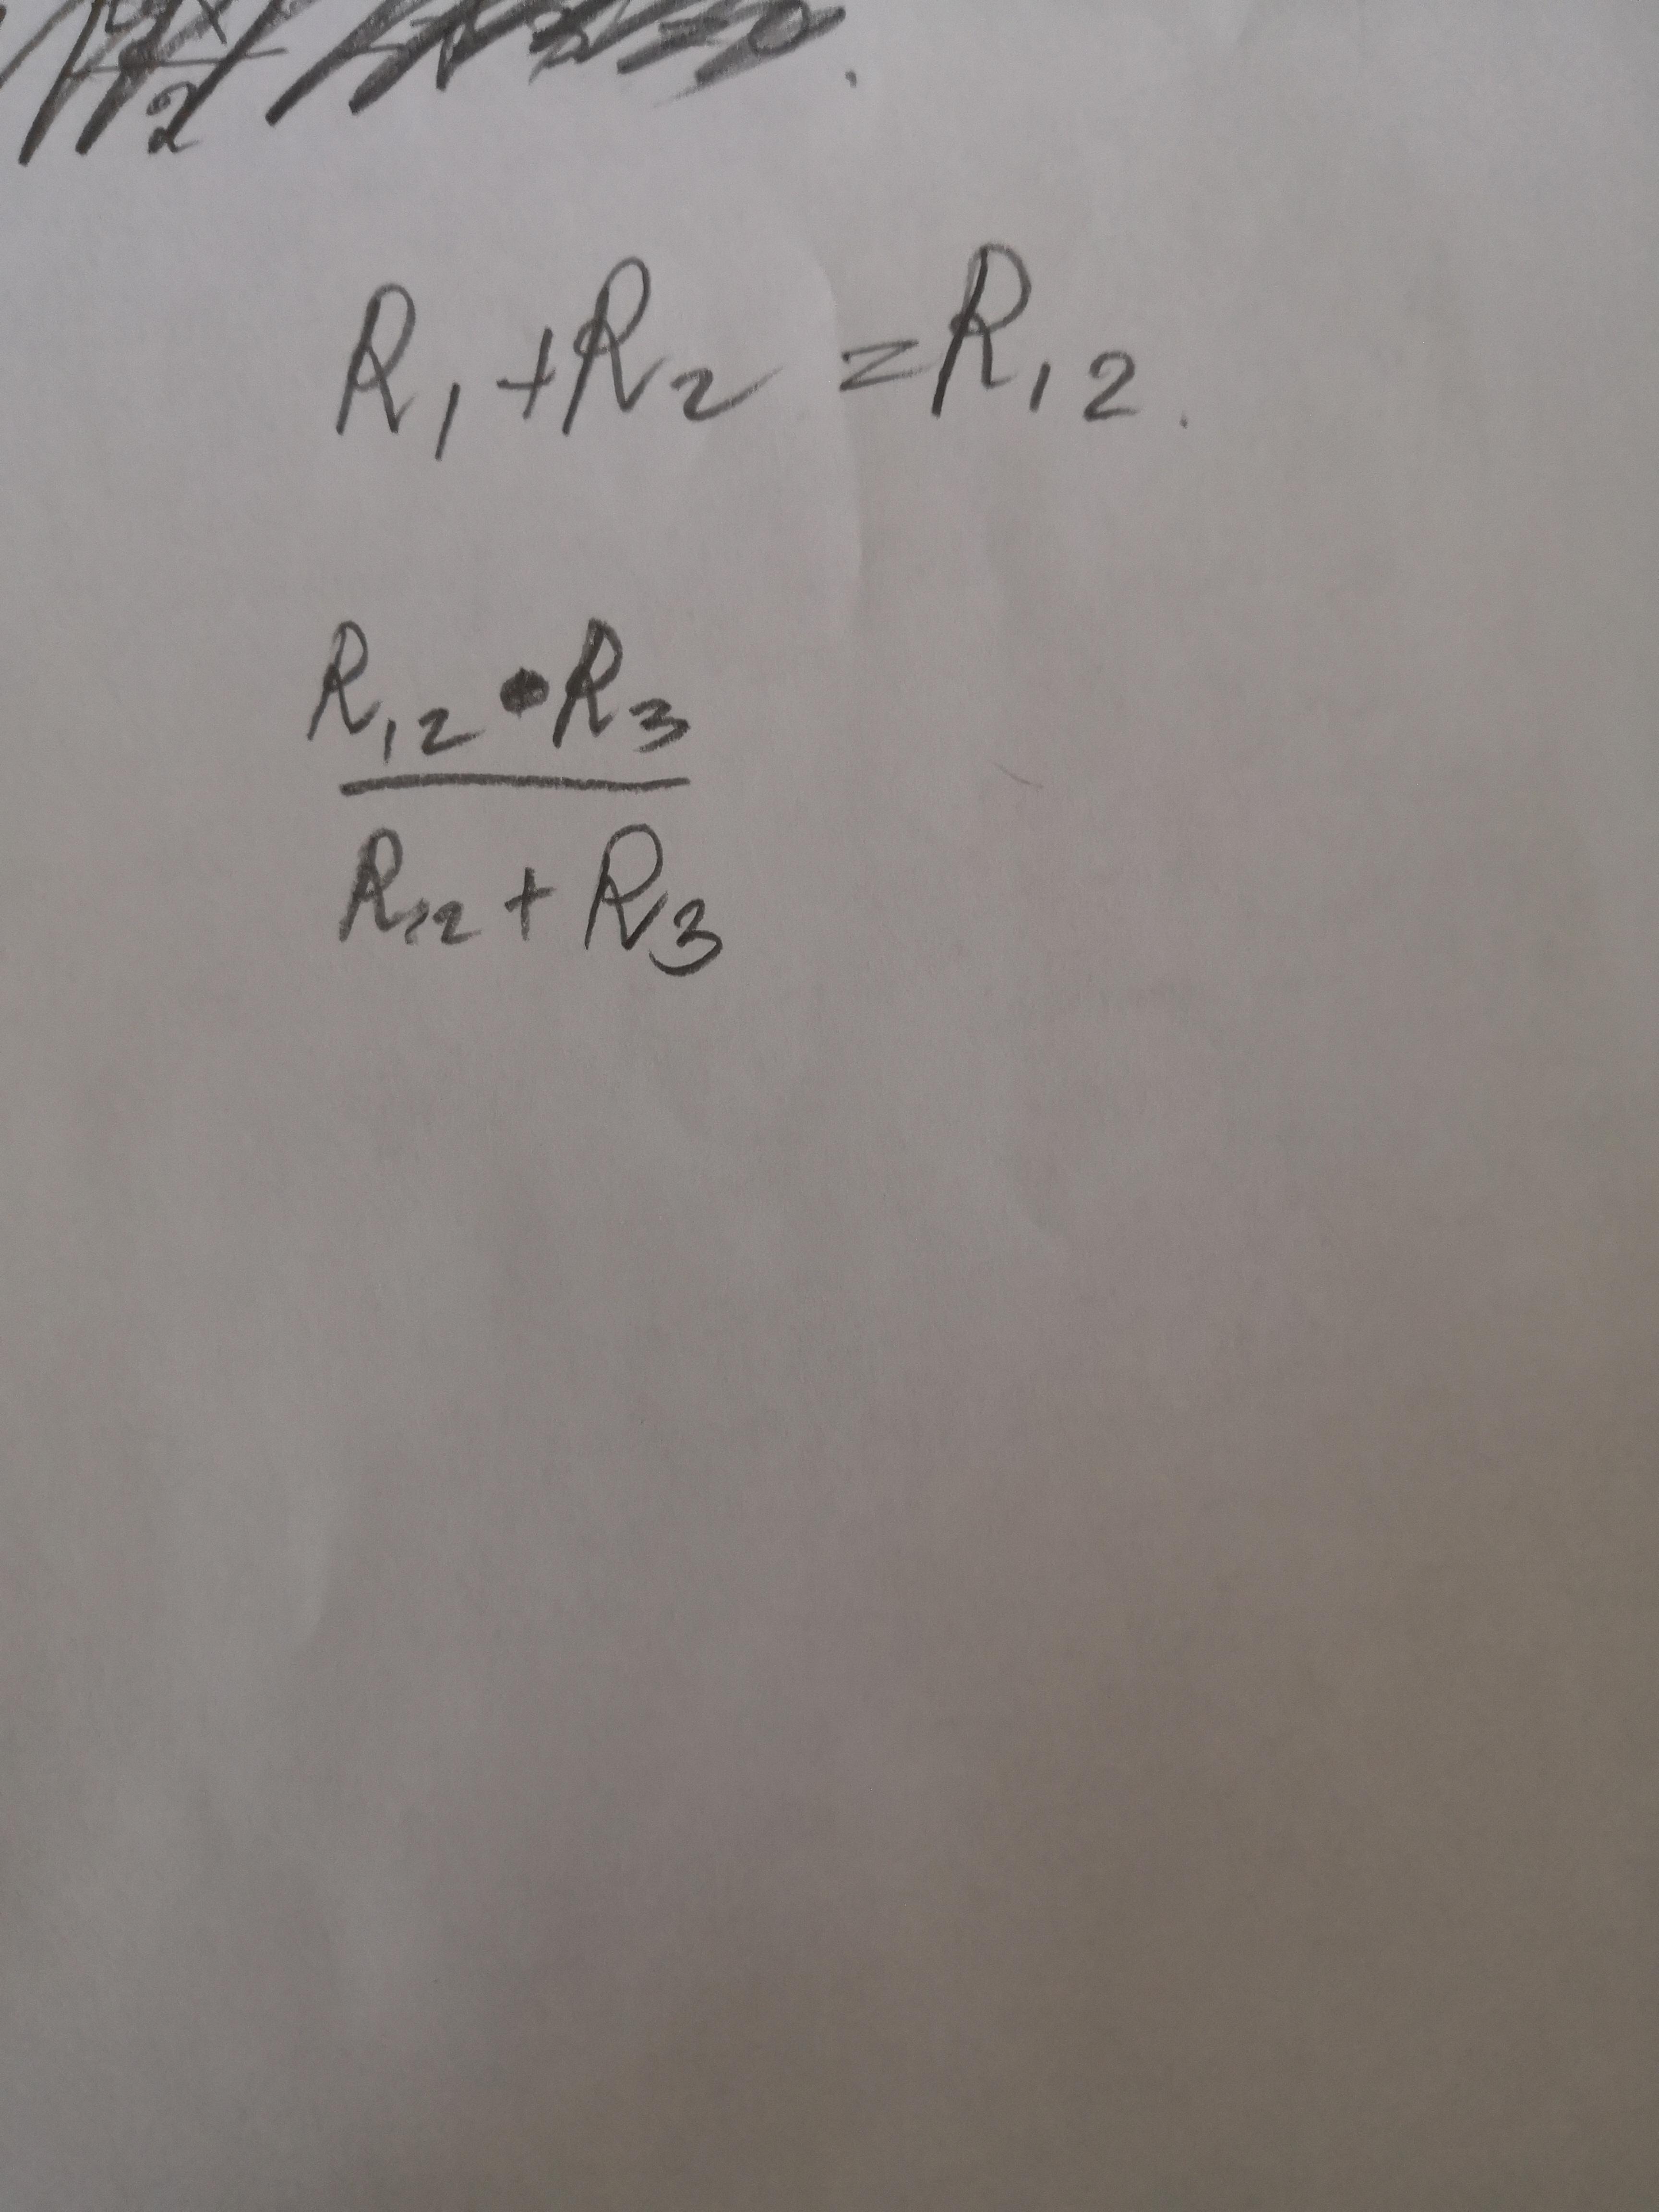 2
R₁+R₂ =R₁₂.
R₁₂•R₃
R₁₂+R₃